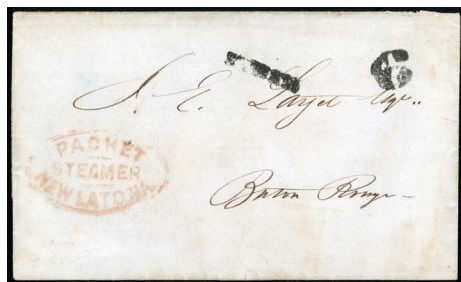 6
J. E. Larget Esqr.
PACKET
STEAMER
NEW LATONA
Baton Rouge